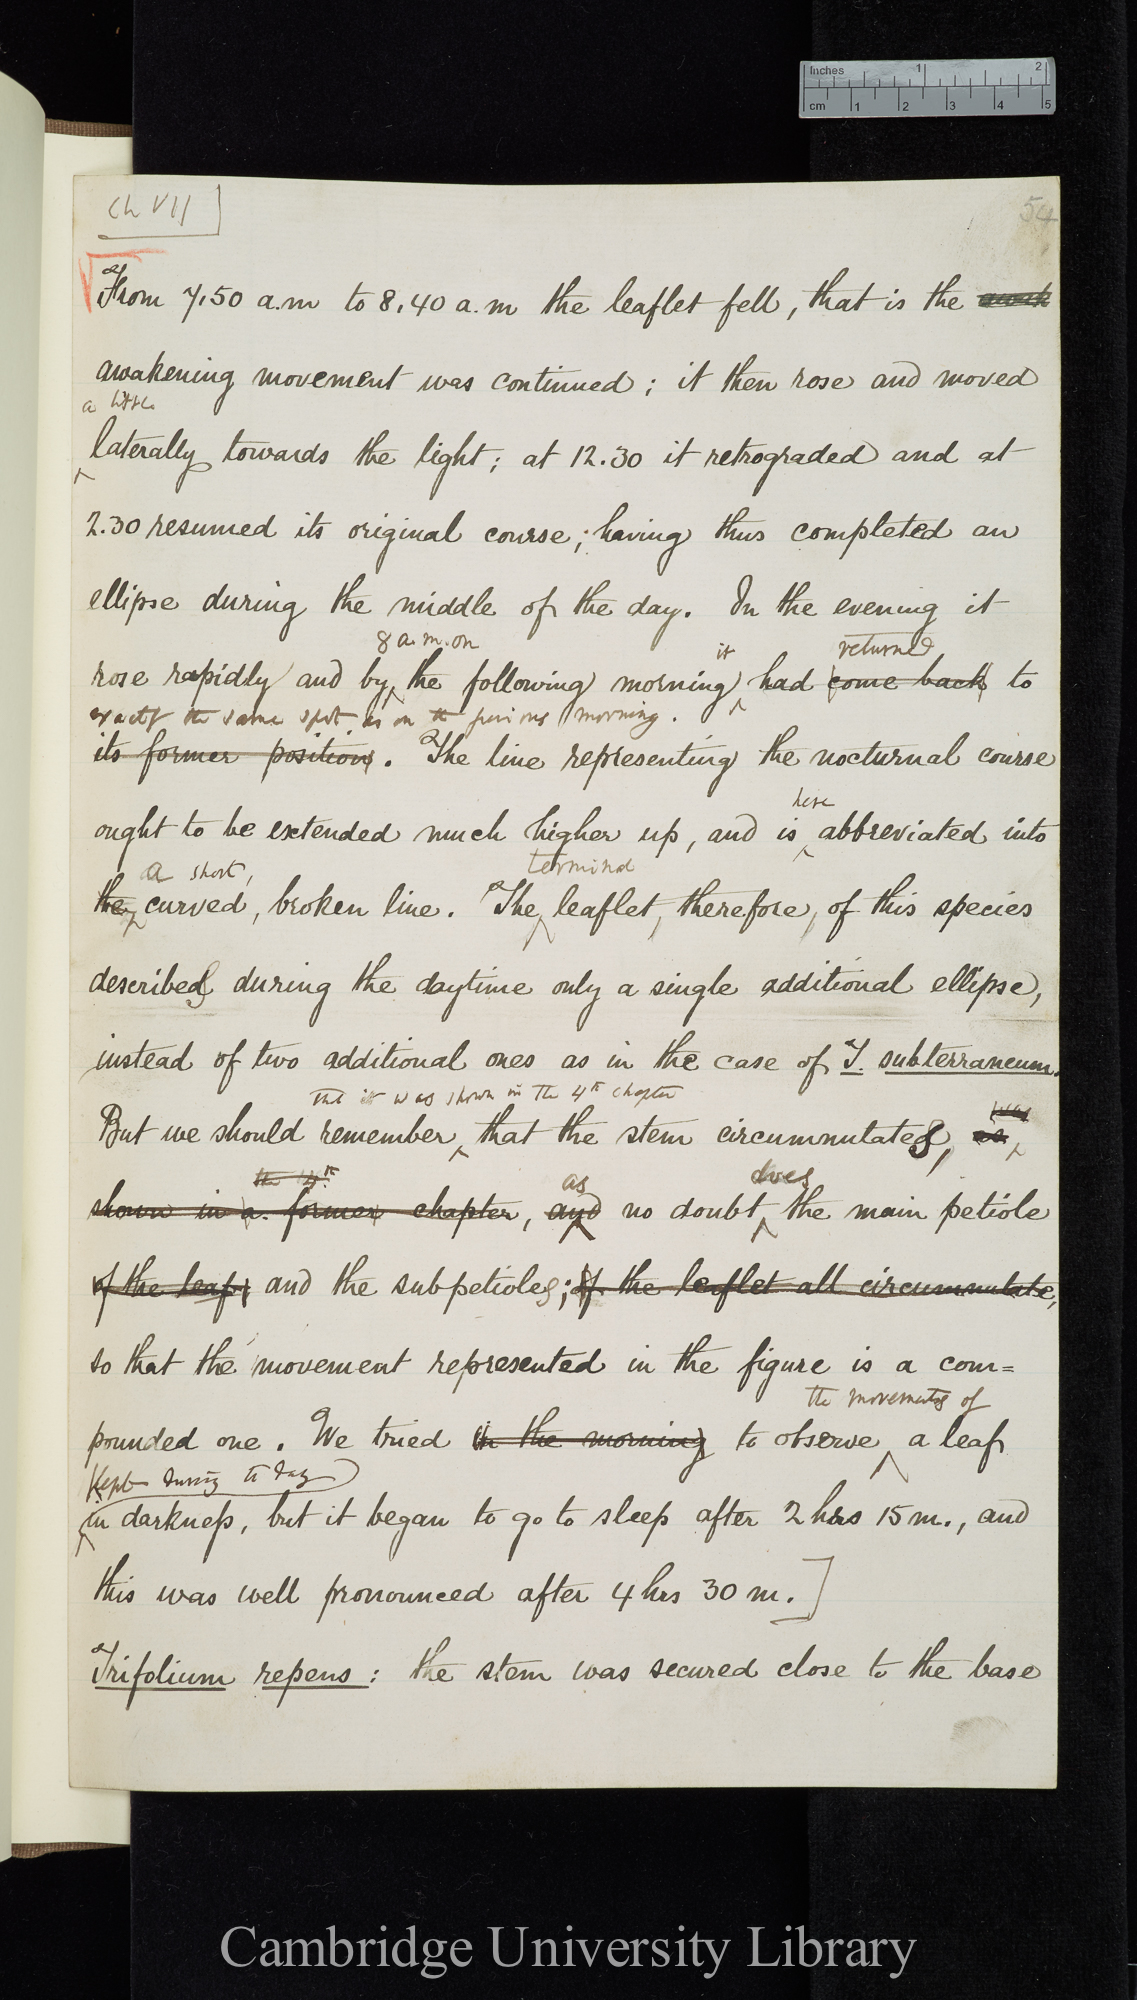 Inches 1 2
cm 1 2 3 4 5
Ch VII
54
From 7.50 a.m to 8.40 a.m the leaflet fell, that is the
awakening movement was continued; it then rose and moved
a little
laterally towards the light; at 12.30 it retrograded and at
2.30 resumed its original course; having thus completed an
ellipse during the middle of the day. In the evening it
8 a.m. on it returned
rose rapidly and by the following morning had come back to
exactly the same spot as on the previous morning.
its former position. The line representing the nocturnal course
here
ought to be extended much higher up, and is abbreviated into
a short, terminal
the curved, broken line. The leaflet, therefore, of this species
described during the daytime only a single additional ellipse,
instead of two additional ones as in the case of T. subterraneum.
that it was shown in the 4th chapter was
But we should remember, that the stem circumnutates, as
the 4th as does
shown in a former chapter, and no doubt the main petiole
of the leaf, and the subpetioles; of the leaflet all circumnutate,
so that the movement represented in the figure is a com=
the movements of
pounded one. We tried in the morning to observe a leaf
kept during the day
in darkness, but it began to go to sleep after 2 hrs 15 m., and
this was well pronounced after 4 hrs 30 m.]
Trifolium repens: the stem was secured close to the base
Cambridge University Library